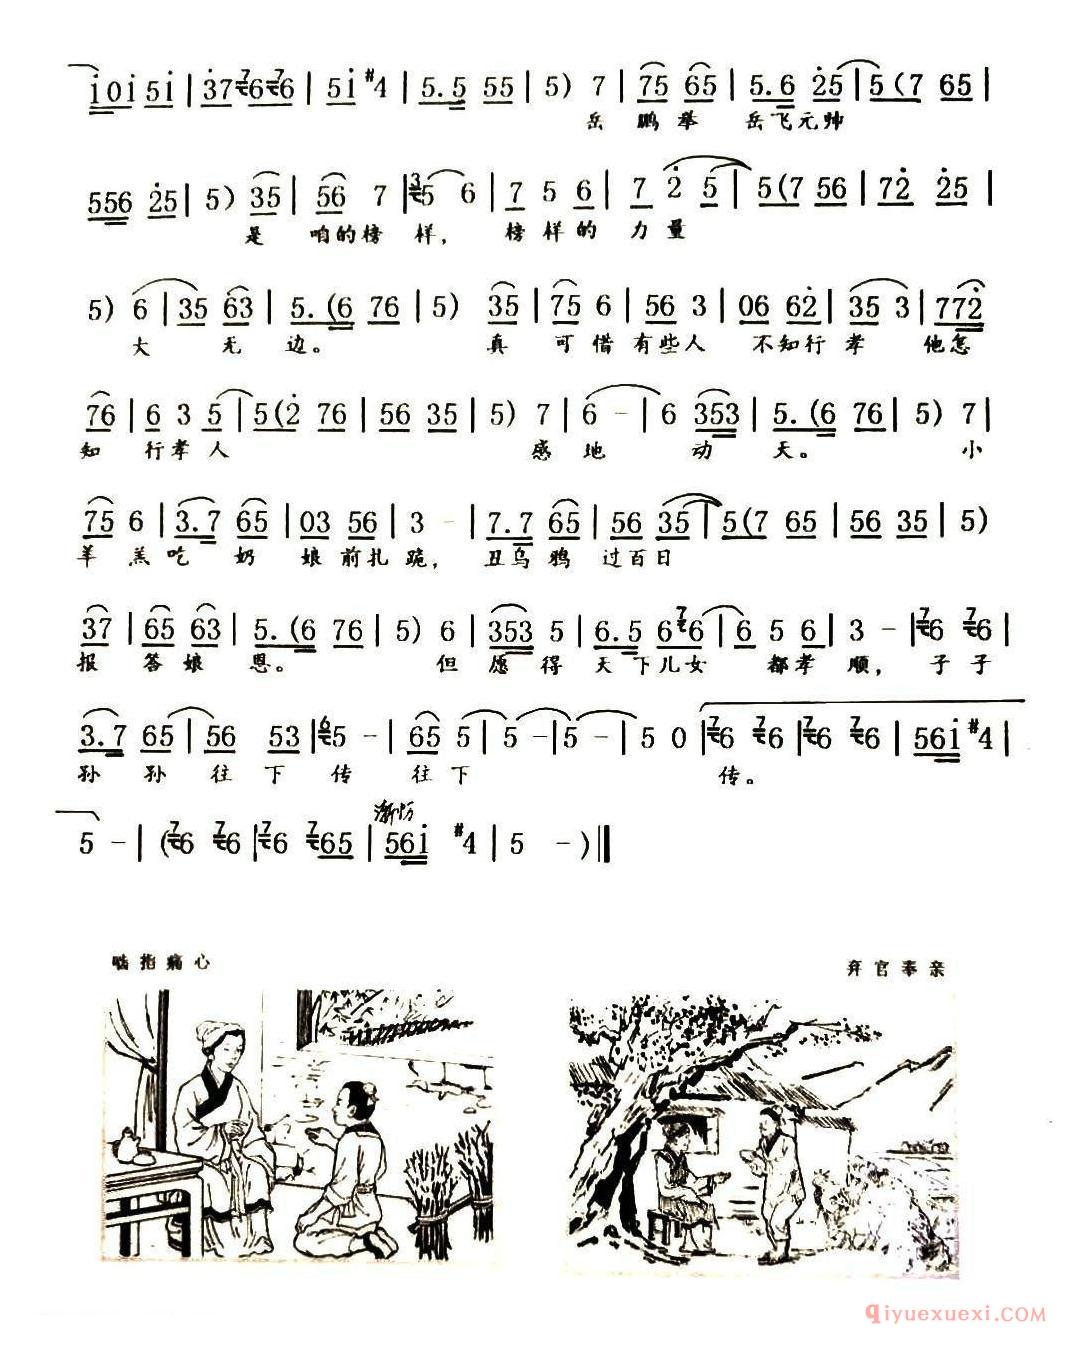 i0i5i | 37 6 6 | 5i #4 | 5.5 55 | 5) 7 | 75 65 | 5.6 25 | 5(7 65 |
岳 鹏 举 岳飞元帅
556 25 | 5) 35 | 56 7 | 5 6 | 7 5 6 | 7 2 5 | 5(7 56 | 72 25 |
是 咱的榜 样, 榜样的 力量
5) 6 | 35 63 | 5.(6 76 | 5) 35 | 75 6 | 56 3 | 06 62 | 35 3 | 772
大 无 边。 真 可惜有些人 不知行 孝 他怎
76 | 6 3 5 | 5(2 76 | 56 35 | 5) 7 | 6 - | 6 353 | 5.(6 76 | 5) 7 |
知 行孝人 感 地 动 天。 小
75 6 | 3.7 65 | 03 56 | 3 - | 7.7 65 | 56 35 | 5(7 65 | 56 35 | 5)
羊 羔吃 奶 娘前扎跪, 丑乌鸦 过百日
37 | 65 63 | 5.(6 76 | 5) 6 | 353 5 | 6.5 6 6 | 6 5 6 | 3 - | 6 6 |
报 答娘 恩。 但 愿得 天下儿女 都孝 顺, 子子
3.7 65 | 56 53 | 5 - | 65 5 | 5 - | 5 - | 5 0 | 6 6 | 6 6 | 56i #4 |
孙 孙 往 下 传 往下 传。
渐慢
5 - | (6 6 | 6 65 | 56i #4 | 5 - ) ‖
啮指痛心
弃官奉亲
Qiyuexuexi.COM